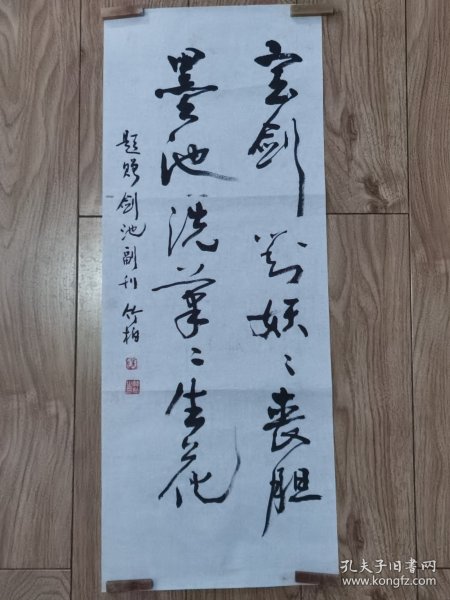 宝剑对妖々丧胆
墨池洗笔々生花
题赠剑池副刊 竹柏
孔夫子旧书网
www.kongfz.com